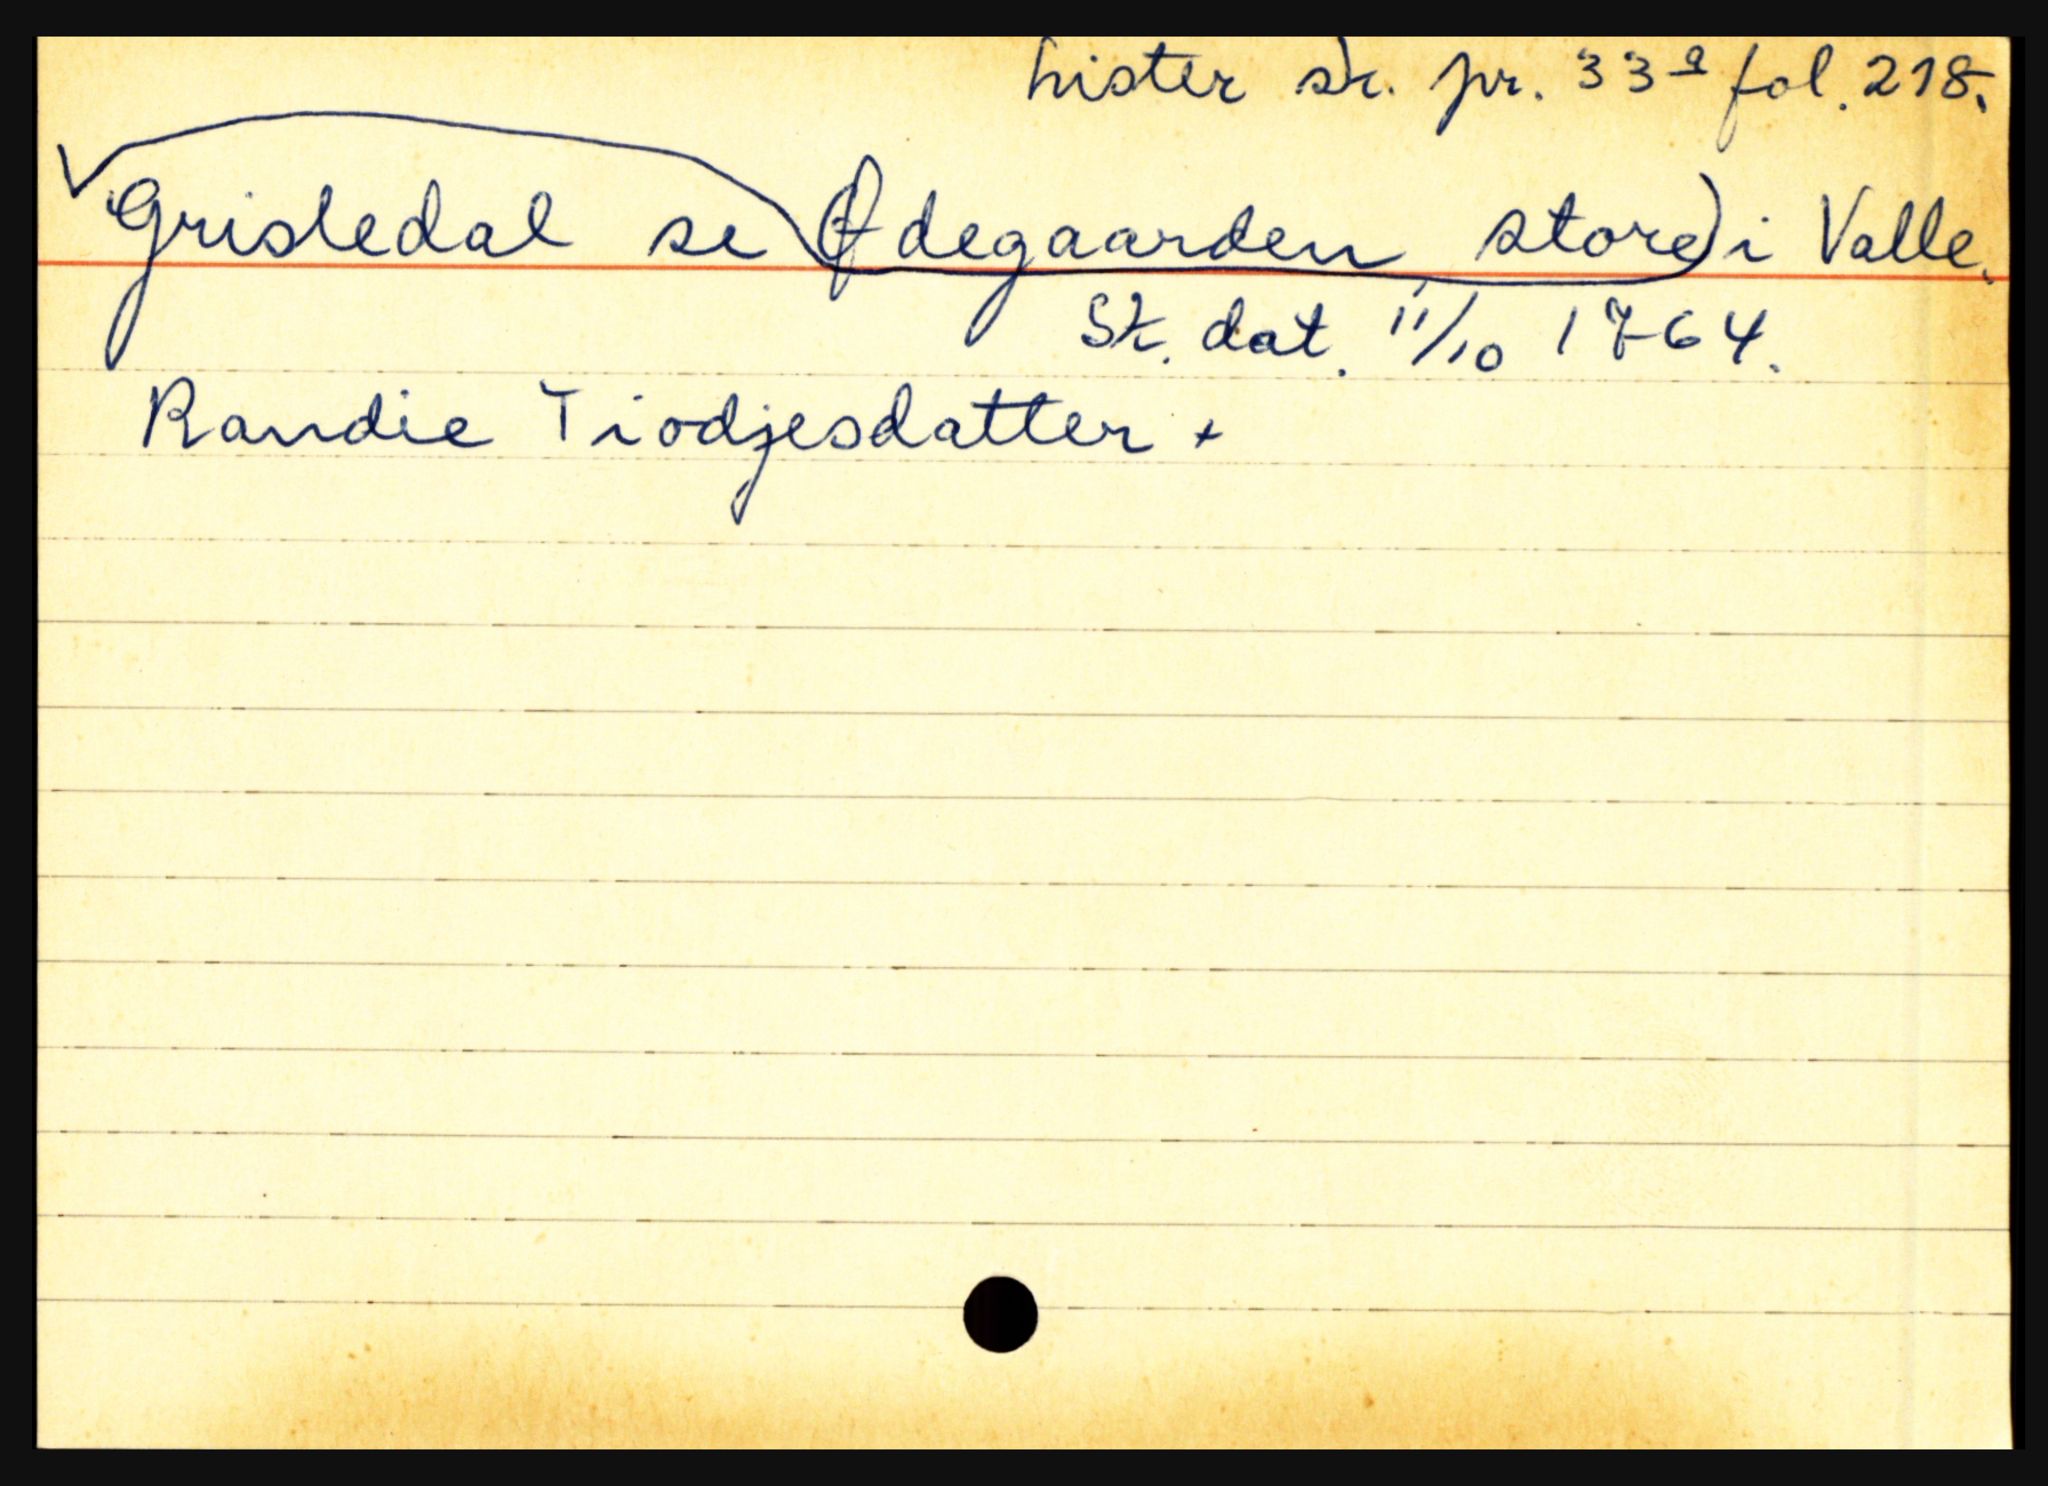 Lister sk. pr. 33ª fol. 218.
Grisledal se Ødegaarden store) i Valle.
Sk. dat. 11/10 1764.
Randie Tiodjesdatter +